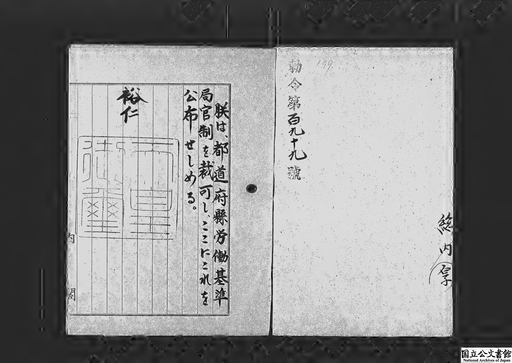 勅令第百九十九號
199
総 内 厚
朕は、都道府縣労働基準
局官制を裁可し、ここにこれを
公布せしめる。
裕仁
天皇
御璽
内閣
国立公文書館
National Archives of Japan